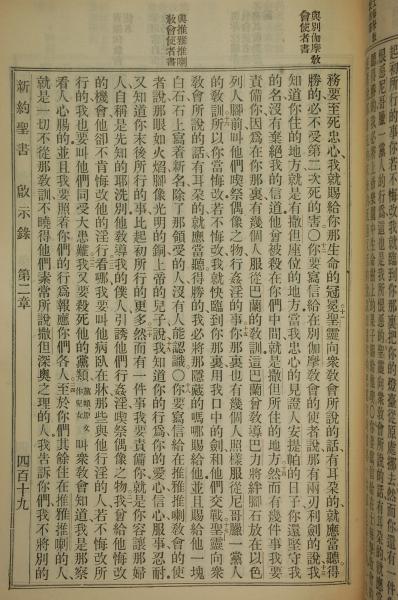 與別伽摩教
會使者書
與推雅推喇
教會使者書
務要至死忠心我就賜給你那生命的冠冕聖靈向衆教會所說的話有耳朶的就應當聽得
勝的必不受第二次死的害〇你要寫信給在別伽摩教會的使者說那有兩刃利劍的說我
知道你住的地方就是有撒但座位的地方當我忠心的見證人安提帕的日子你還堅守我
的名沒有棄絕我的信道他會被殺在你們中間就是撒但所住的地方然而有幾件事我要
責備你因爲在你那裏有幾個人服從巴蘭的教訓這巴蘭會教導巴力將絆脚石放在以色
列人脚前叫他們喫祭偶像之物行姦淫的事你那裏也有幾個人照樣服從尼哥臘一黨人
的教訓所以你當悔改若不悔改我就快臨到你那裏用我口中的劍和他們交戰聖靈向衆
教會所說的話有耳朶的就應當聽得勝的我必將那隱藏的嗎哪賜給他並且賜給他一塊
白石石上寫着新名除了那領受的人沒有人能認識〇你要寫信給在推雅推喇教會的使
者說那眼如火焰脚像光明的銅上帝的兒子說我知道你的行爲你的愛心信心服事忍耐
又知道你末後所行的事比起初所行的更多然而有一件事我要責備你就是你容讓那婦
人自稱是先知的耶洗別他教導我的僕人引誘他們行姦淫喫祭偶像之物我會給他悔改
的機會他卻不肯悔改他的淫行看哪我要叫他病臥在牀那些與他行淫的人若不悔改所
行的我也要叫他們同受大患難我又要殺死他的黨類黨類原文作兒女叫衆教會知道我是那察
看人心腸的並且我要照着你們的行爲報應你們各人至於你們其餘住在推雅推喇的人
就是一切不從那教訓不曉得他們素常所說撒但深奧之理的人我告訴你們我不將別的
新約聖書 啟示錄 第二章 四百十九